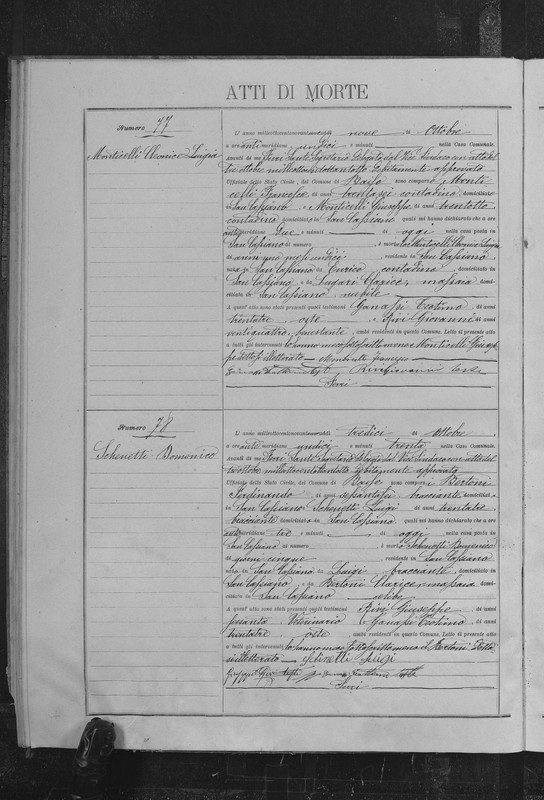 ATTI DI MORTE
Numero 77
Monticelli Veronica Luigia
L'anno milleottocentonovant di nove di Ottobre
a ore anti meridiane undici e minuti nella Casa Comunale.
Avanti di me Ferri Sante Segretario Delegato dal Vice Sindaco con atto del
tre ottobre milleottocentottantotto debitamente approvato
Uffiziale dello Stato Civile, del Comune di Baiso sono comparsi Monti
celli Francesco di anni trentasei contadino domiciliato
in San Cassiano e Monticelli Giuseppe di anni trentotto
contadino domiciliato in San Cassiano quali mi hanno dichiarato che a ore
anti meridiane due e minuti di oggi nella casa posta in
San Cassiano al numero è morta Monticelli Luigia
di anni uno mesi undici residente in San Cassiano
nata in San Cassiano da Enrico contadino domiciliato in
San Cassiano e da Lugari Clarice massaia domi-
ciliata in San Cassiano nubile
A quest'atto sono stati presenti quali testimoni Ganassi Costino di anni
trentatre oste e Rivi Giovanni di anni
ventiquattro, benestante ambi residenti in questo Comune. Letto il presente atto
a tutti gli intervenuti lo anno meco sottoscritto meno Monticelli Giusep
pe dettosi illetterato
Rivi Giovanni teste
Ferri
Numero 78
Schenetti Domenico
L'anno milleottocento di tredici di Ottobre
a ore anti meridiane undici e minuti trenta nella Casa Comunale.
Avanti di me Ferri Sante Segretario Delegato dal Vice Sindaco con atto del
tre ottobre milleottocentottantotto debitamente approvato
Uffiziale dello Stato Civile, del Comune di Baiso sono comparsi Bertoni
Ferdinando di anni sessantasei bracciante domiciliato
in San Cassiano e Schenetti Luigi di anni trentatre
bracciante domiciliato in San Cassiano quali mi hanno dichiarato che a ore
anti meridiane tre e minuti di oggi nella casa posta in
San Cassiano al numero è morto Schenetti Domenico
di anni cinque residente in San Cassiano
nato in San Cassiano da Luigi bracciante domiciliato in
San Cassiano e da Bertoni Clarice massaia domi-
ciliata in San Cassiano celibe
A quest'atto sono stati presenti quali testimoni Rivi Giuseppe di anni
sessanta Veterinario e Ganassi Costino di anni
trentatre oste ambi residenti in questo Comune. Letto il presente atto
a tutti gli intervenuti lo anno meco sottoscritto meno il Bertoni dettosi
illetterato Schenetti Luigi
Ferri